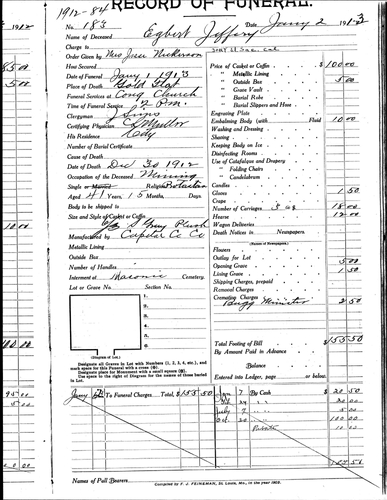 1912-84 RECORD OF FUNERAL.
No. 183 Date Jany 2 1913
Name of Deceased Egbert Jeffery
Charge to
Order Given by Mrs Josee Wickerson
How Secured
Date of Funeral Jany 1 1913
Place of Death Gold Flat
Funeral Services at Cong Church
Time of Funeral Service 2 P.M.
Clergyman J Sims
Certifying Physician
His Residence City
Number of Burial Certificate
Cause of Death
Date of Death Dec 30 1912
Occupation of the Deceased Mining
Single or Married Religion Protestan
Aged 41 Years, 15 Months, Days.
Body to be shipped to
Size and Style of Casket or Coffin
Grey Plush
Manufactured by
Metallic Lining
Outside Box
Number of Handles
Interment at Masonic Cemetery.
Lot or Grave No. Section No.
1.
2.
3.
4.
5.
6.
(Diagram of Lot.)
Designate all Graves in Lot with Numbers (1, 2, 3, 4, etc.), and
mark space for this Funeral with a cross.
Designate place for Monument with a small square.
Use space to the right of Diagram for the names of those buried
in Lot.
Price of Casket or Coffin $100.00
" Metallic Lining
" Outside Box 5.00
" Grave Vault
" Burial Robe
" Burial Slippers and Hose
Engraving Plate
Embalming Body (with Fluid 10.00
Washing and Dressing
Shaving
Keeping Body on Ice
Disinfecting Rooms
Use of Catafalque and Drapery
" Folding Chairs
" Candelabrum
Candles
Gloves 1.50
Crape
Number of Carriages 3 18.00
Hearse 12.00
Wagon Deliveries
Death Notices in Newspapers
(Names of Newspapers.)
Flowers
Outlay for Lot
Opening Grave 5.00
Lining Grave 1.50
Shipping Charges, prepaid
Removal Charges
Cremating Charges
Bugg Minister 2.50
Total Footing of Bill $155.50
By Amount Paid in Advance
Balance
Entered into Ledger, page or below.
To Funeral Charges Total, $155.50
Jan 7 By Cash $ 20 50
20.00
July 7 5.00
Oct. 20 100.00
Rebate 10.00
Names of Pall Bearers.
Compiled by F. J. FEINEMAN, St. Louis, Mo., in the year 1905.